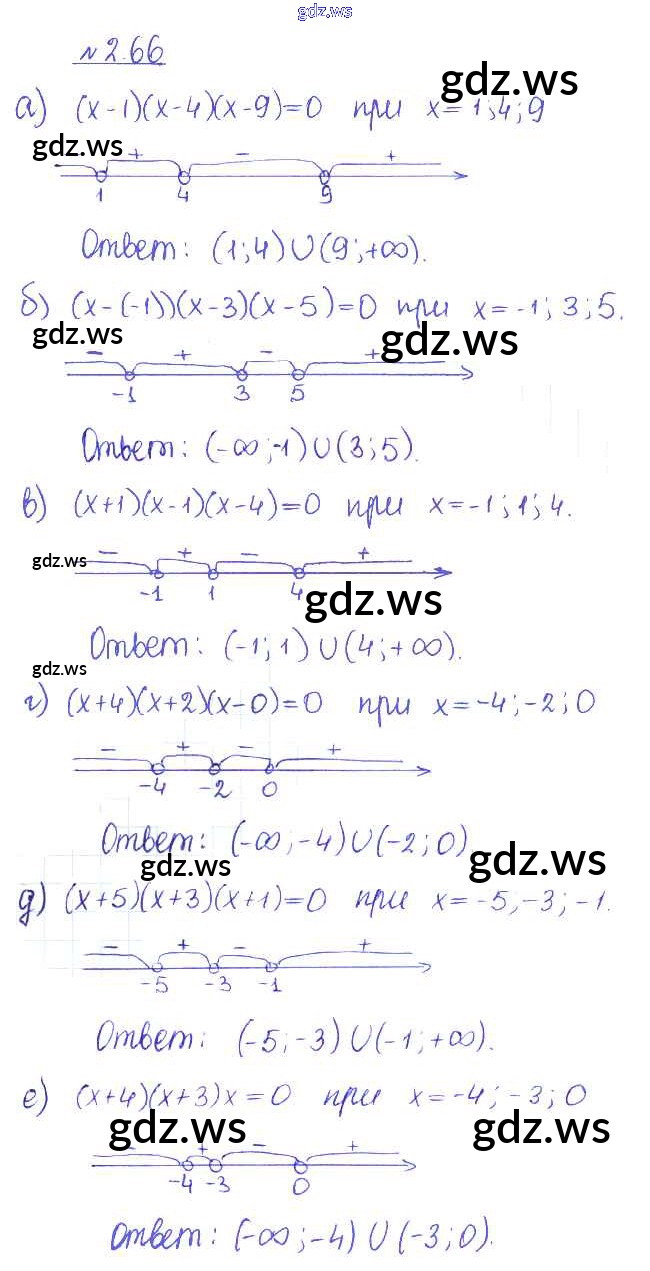 gdz.ws
№2.66
gdz.ws
а) (x-1)(x-4)(x-9)=0 при x=1;4;9
gdz.ws
+ − +
1 4 9
Ответ: (1;4)∪(9;+∞).
б) (x-(-1))(x-3)(x-5)=0 при x=-1;3;5.
gdz.ws gdz.ws
− + − +
-1 3 5
Ответ: (-∞;-1)∪(3;5).
в) (x+1)(x-1)(x-4)=0 при x=-1;1;4.
gdz.ws
− + − +
-1 1 4
gdz.ws
Ответ: (-1;1)∪(4;+∞).
gdz.ws
г) (x+4)(x+2)(x-0)=0 при x=-4;-2;0
− + − +
-4 -2 0
Ответ: (-∞;-4)∪(-2;0)
gdz.ws gdz.ws
д) (x+5)(x+3)(x+1)=0 при x=-5;-3;-1.
− + − +
-5 -3 -1
Ответ: (-5;-3)∪(-1;+∞).
е) (x+4)(x+3)x=0 при x=-4;-3;0
gdz.ws gdz.ws
− + − +
-4 -3 0
Ответ: (-∞;-4)∪(-3;0).